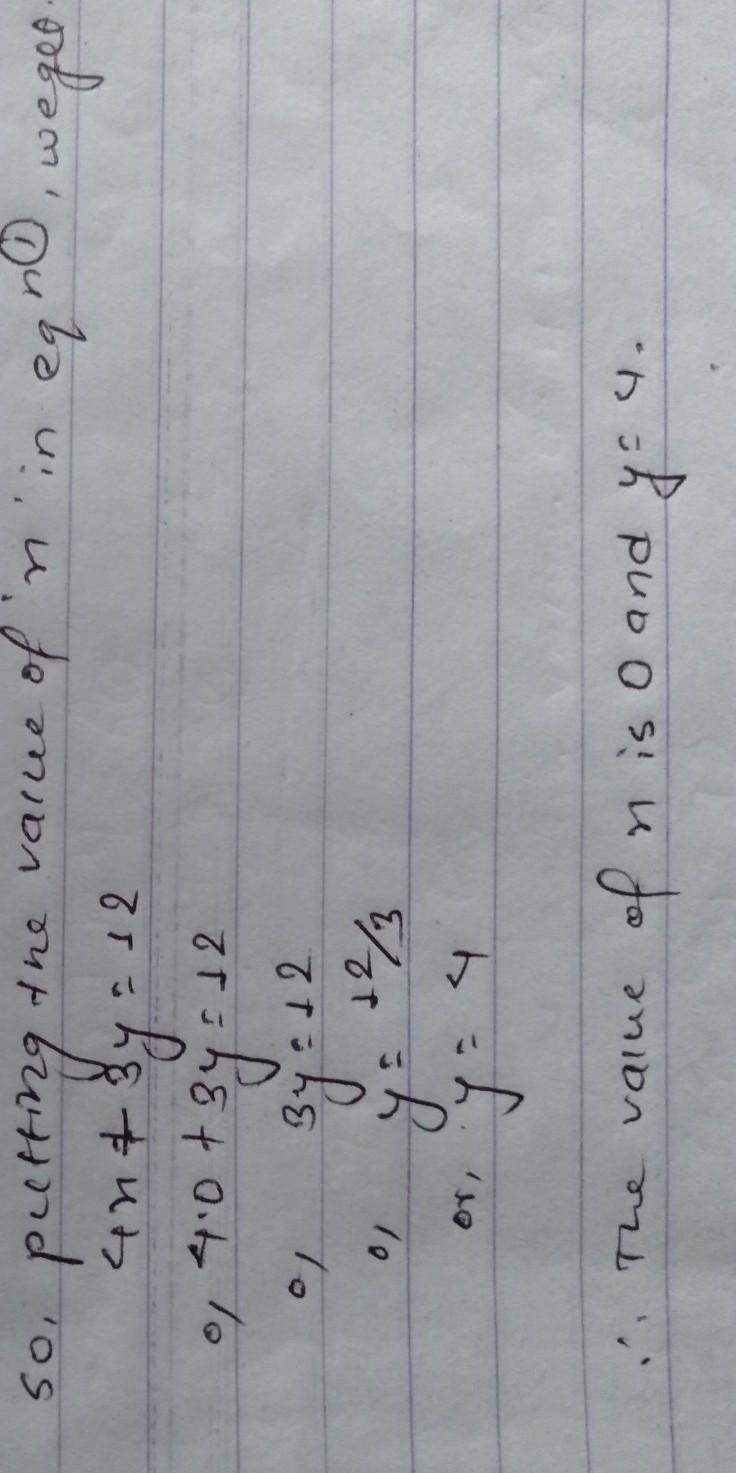 so, putting the value of 'n' in eqn ①, we get.
4n + 3y = 12
o, 4.0 + 3y = 12
o, 3y = 12
o, y = 12/3
or, y = 4
∴ The value of n is 0 and y = 4.